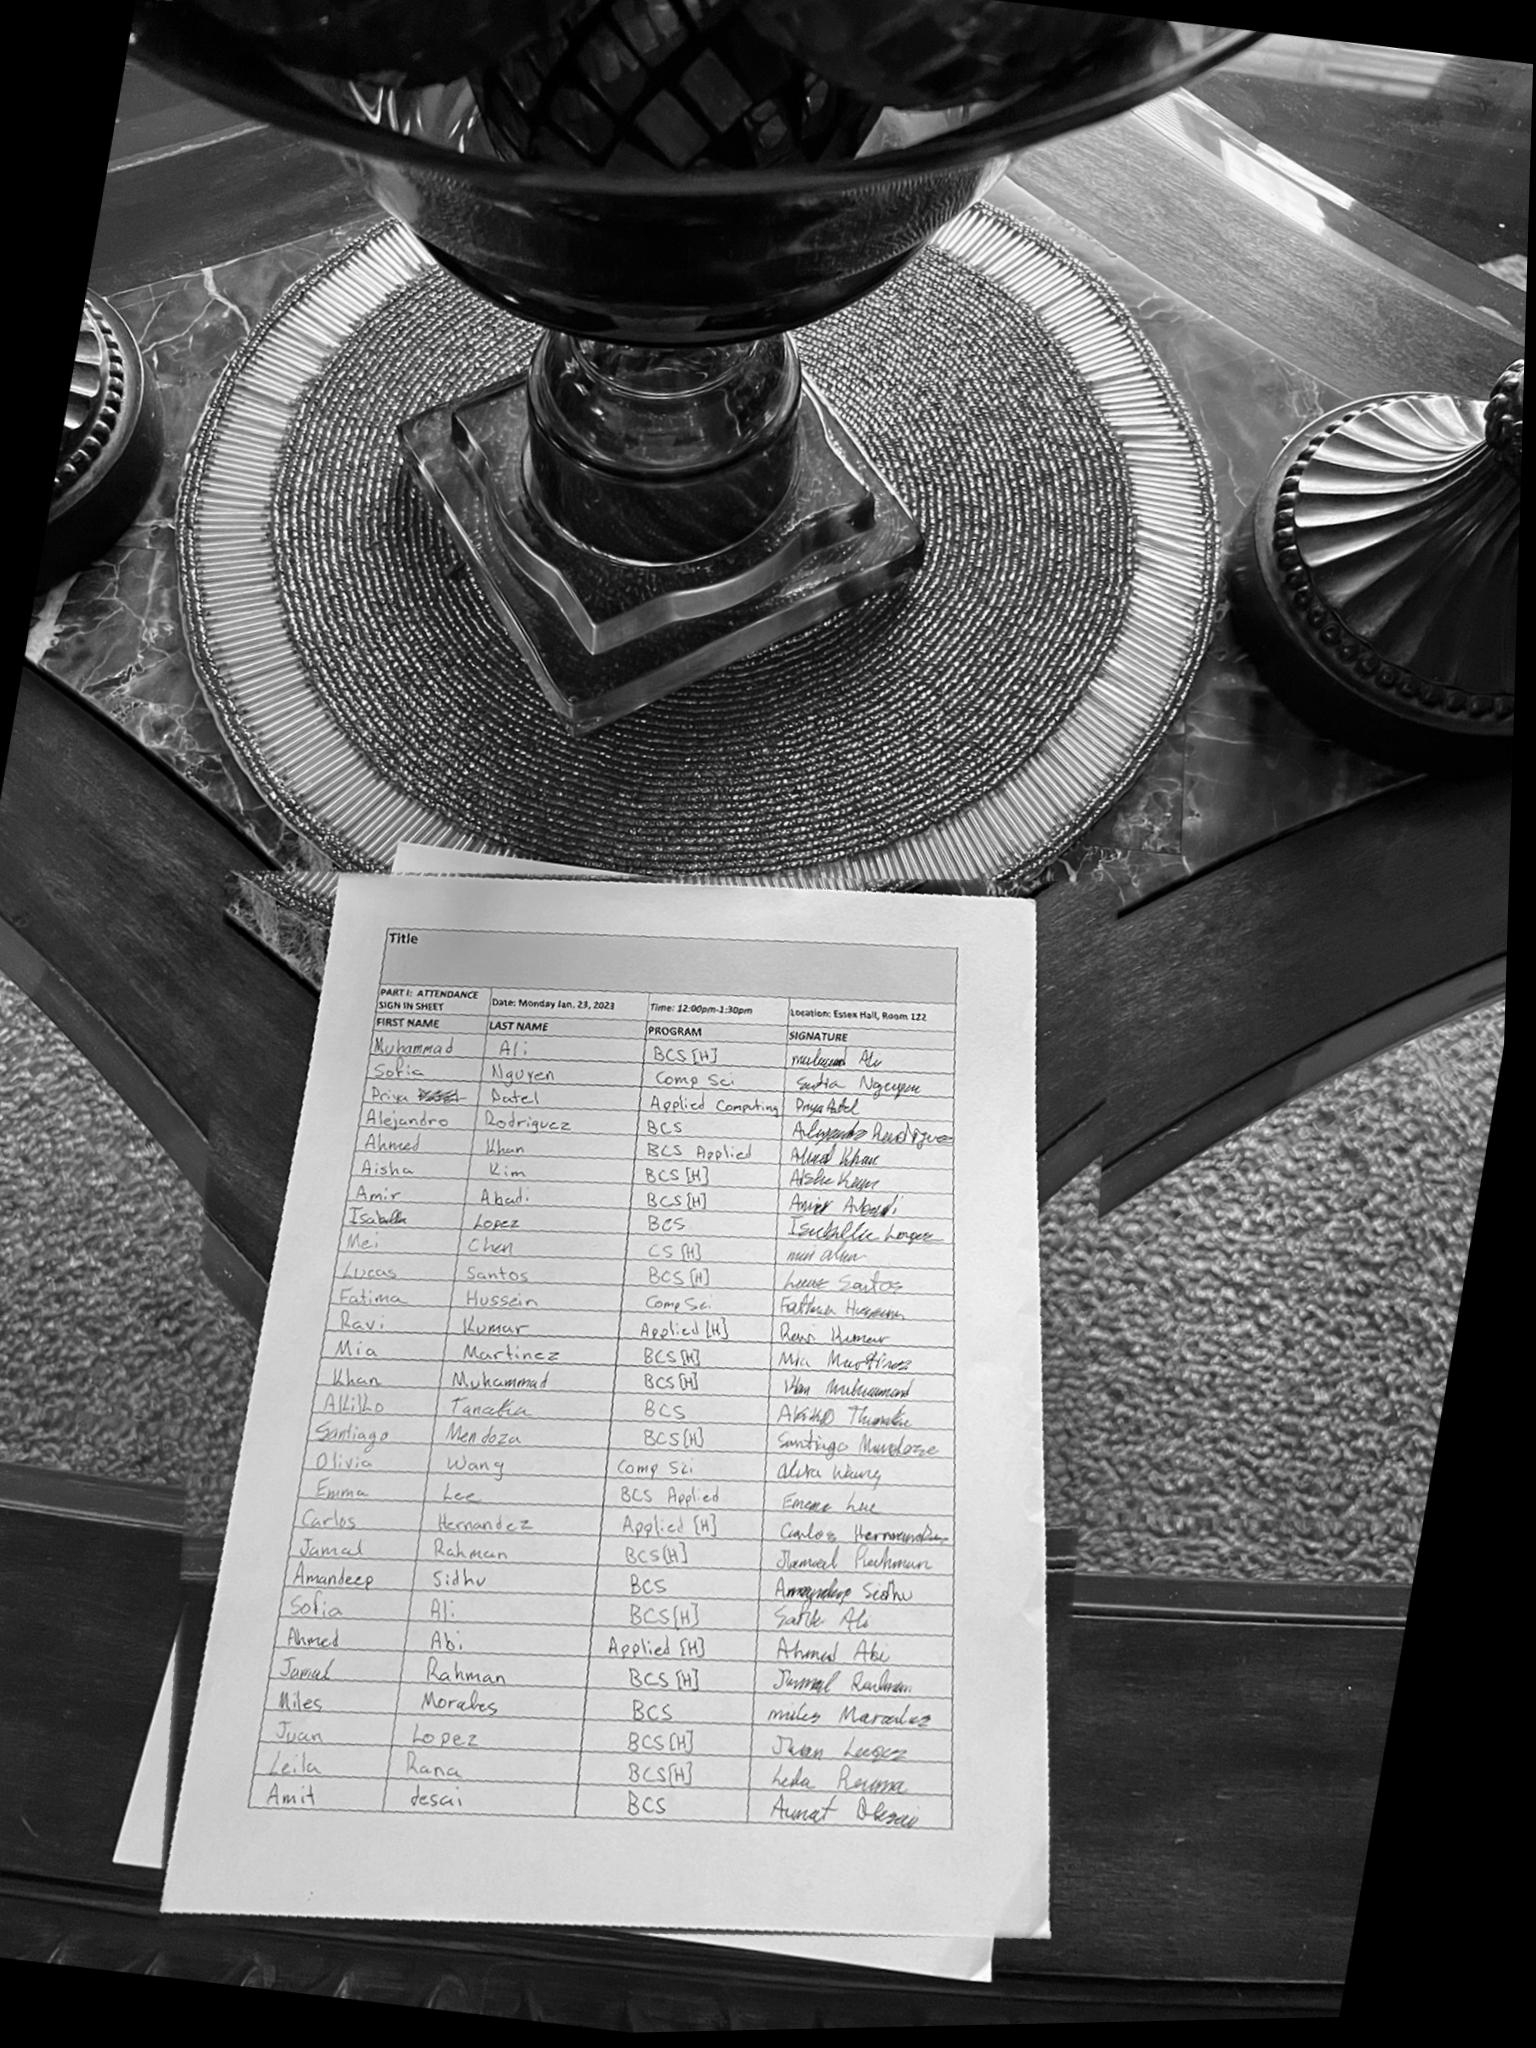 Title
PART I: ATTENDANCE SIGN IN SHEET Date: Monday Jan. 23, 2023 Time: 12:00pm-1:30pm Location: Essex Hall, Room 122
FIRST NAME LAST NAME PROGRAM SIGNATURE
Muhammad Ali BCS [H] Ali
Sofia Nguyen Comp Sci Sofia Nguyen
Priya Patel Applied Computing Priya Patel
Alejandro Rodriguez BCS Alejandro Rodriguez
Ahmed Khan BCS Applied Ahmed Khan
Aisha Kim BCS [H] Aisha Kim
Amir Abadi BCS [H] Amir Abadi
Isabella Lopez BCS Lopez
Mei Chen CS [H] mei chen
Lucas Santos BCS [H] Lucas Santos
Fatima Hussein Comp Sci Fatima Hussein
Ravi Kumar Applied [H] Ravi Kumar
Mia Martinez BCS [H] Mia Martinez
Khan Muhammad BCS [H] Khan Muhammad
Akiko Tanaka BCS Akiko
Santiago Mendoza BCS [H] Santiago Mendoza
Olivia Wang Comp Sci Wang
Emma Lee BCS Applied Emma Lee
Carlos Hernandez Applied [H] Carlos Hernandez
Jamal Rahman BCS [H] Jamal Rahman
Amandeep Sidhu BCS Amandeep Sidhu
Sofia Ali BCS [H] Ali
Ahmed Abi Applied [H] Ahmed Abi
Jamal Rahman BCS [H] Jamal Rahman
Miles Morales BCS miles Morales
Juan Lopez BCS [H] Juan Lopez
Leila Rana BCS [H] Leila
Amit desai BCS Desai